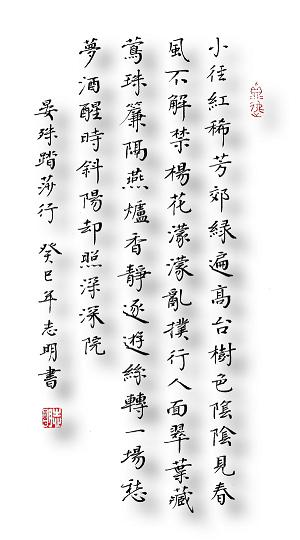 小徑紅稀芳郊綠遍高台樹色陰陰見春
風不解禁楊花濛濛亂撲行人面翠葉藏
鶯珠簾隔燕爐香靜逐遊絲轉一場愁
夢酒醒時斜陽却照深深院
晏殊踏莎行 癸巳年志明書